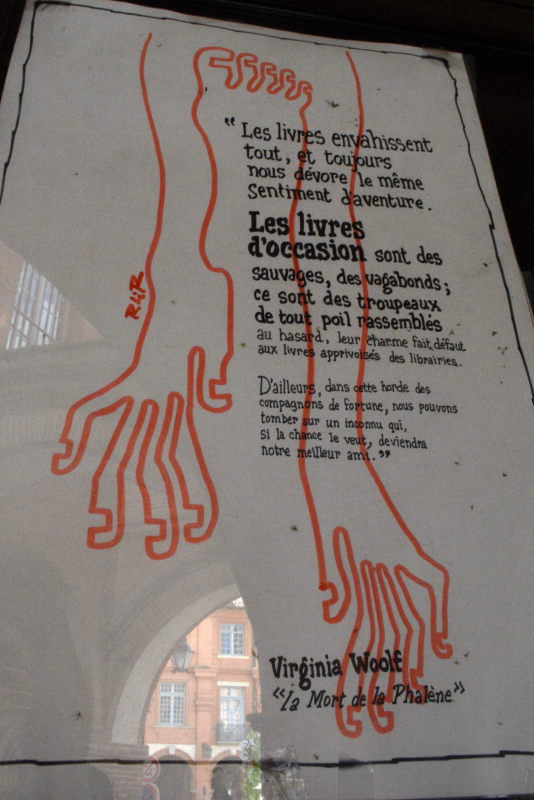 “ Les livres envahissent
tout, et toujours
nous dévore le même
sentiment d'aventure.
Les livres
d'occasion sont des
sauvages, des vagabonds ;
ce sont des troupeaux
de tout poil rassemblés
au hasard, leur charme fait défaut
aux livres apprivoisés des librairies.
D'ailleurs, dans cette horde des
compagnons de fortune, nous pouvons
tomber sur un inconnu qui,
si la chance le veut, deviendra
notre meilleur ami. ”
Virginia Woolf
“La Mort de la Phalène”